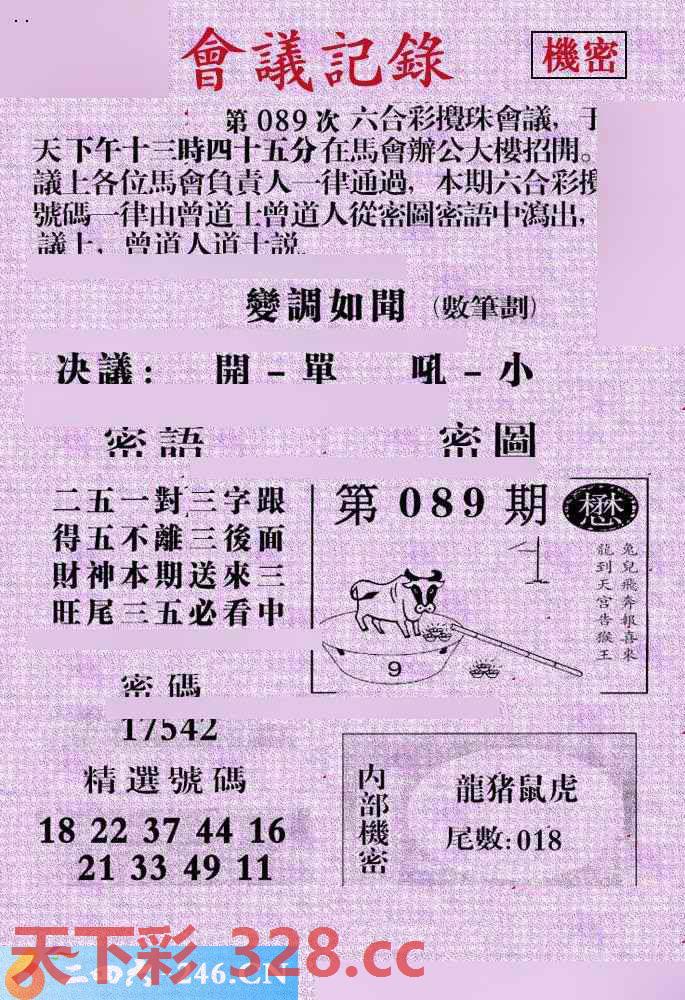 會議記錄
機密
第 089 次 六合彩攪珠會議，于
天下午十三時四十五分在馬會辦公大樓招開。
議上各位馬會負責人一律通過，本期六合彩攪
號碼一律由曾道士曾道人從密圖密語中瀉出，
議上，曾道人道士說
變調如聞（數筆劃）
决議： 開－單 吼－小
密語 密圖
二五一對三字跟
得五不離三後面
財神本期送來三
旺尾三五必看中
第 089 期
懋
兔兒飛奔報喜來
龍到天宮告猴王
9
密碼
17542
精選號碼
18 22 37 44 16
21 33 49 11
内部機密
龍猪鼠虎
尾數:018
天下彩 328.cc
二四六 246.CN